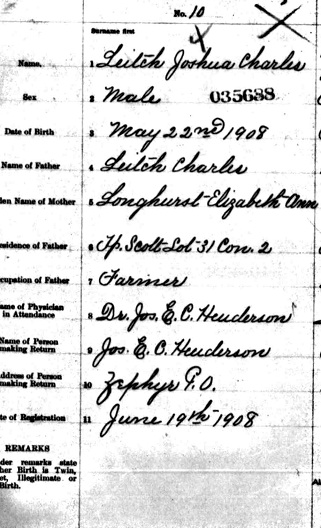 No. 10
Surname first
Name. 1 Leitch Joshua Charles
Sex 2 Male 035688
Date of Birth 3 May 22nd 1908
Name of Father 4 Leitch Charles
den Name of Mother 5 Longhurst Elizabeth Ann
esidence of Father 6 Tp. Scott Lot 31 Con. 2
cupation of Father 7 Farmer
ame of Physician
in Attendance 8 Dr. Jos. E. C. Henderson
Name of Person
making Return 9 Jos. E. C. Henderson
ddress of Person
making Return 10 Zephyr P.O.
te of Registration 11 June 19th 1908
REMARKS
der remarks state
her Birth is Twin,
et, Illegitimate or
Birth.